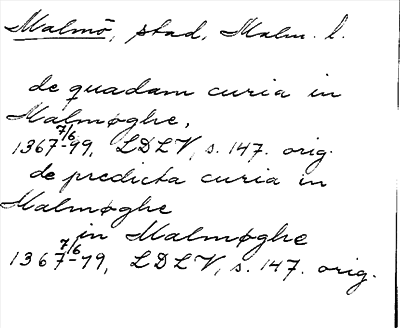 Malmö, stad, Malm. l.
de quadam curia in
Malmøghe,
1367 7/6 -99, LDLV, s. 147. orig.
de predicta curia in
Malmøghe
in Malmøghe
1367 7/6 -99, LDLV, s. 147. orig.